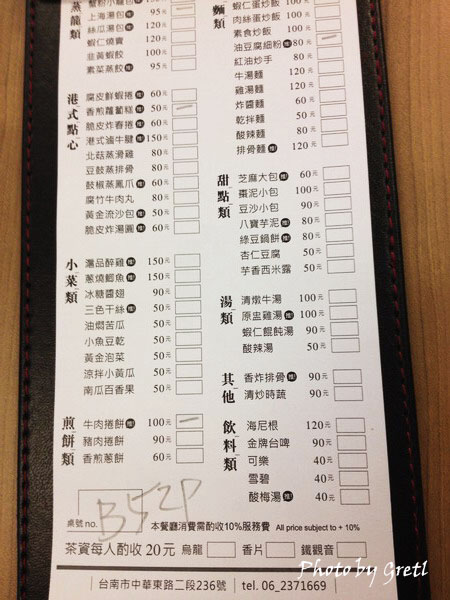 蒸籠類
蟹粉小籠包
上海湯包 推! 95元
絲瓜湯包 推! 120元
蝦仁燒賣 120元
韭黃蝦餃 100元
素菜蒸餃 推! 95元
港式點心
腐皮鮮蝦捲 推! 60元
香煎蘿蔔糕 推! 50元
脆皮炸春捲 推! 60元
港式滷牛腱 推! 150元
北菇蒸滑雞 80元
豆鼓蒸排骨 80元
鼓椒蒸鳳爪 推! 60元
腐竹牛肉丸 80元
黃金流沙包 推! 50元
脆皮炸湯圓 推! 60元
小菜類
滿品醉雞 推! 150元
蔥燒鯽魚 推! 150元
冰糖醬翅 90元
三色干絲 推! 50元
油燜苦瓜 50元
小魚豆乾 50元
黃金泡菜 50元
涼拌小黃瓜 50元
南瓜百香果 50元
煎餅類
牛肉捲餅 推! 100元
豬肉捲餅 90元
香煎蔥餅 60元
麵類
蝦仁蛋炒飯 100元
肉絲蛋炒飯 100元
素食炒飯 100元
油豆腐細粉 推! 80元
紅油炒手 80元
牛湯麵 120元
雞湯麵 120元
炸醬麵 60元
乾拌麵 50元
酸辣麵 80元
排骨麵 推! 120元
甜點類
芝麻大包 推! 60元
棗泥小包 100元
豆沙小包 90元
八寶芋泥 推! 80元
綠豆鍋餅 推! 80元
杏仁豆腐 50元
芋香西米露 50元
湯類
清燉牛湯 100元
原盅雞湯 推! 100元
蝦仁餛飩湯 90元
酸辣湯 50元
其他
香炸排骨 推! 90元
清炒時蔬 90元
飲料類
海尼根 120元
金牌台啤 90元
可樂 40元
雪碧 40元
酸梅湯 推! 40元
桌號no. B5 2P
本餐廳消費需酌收10%服務費 All price subject to + 10%
茶資每人酌收 20元 烏龍 香片 鐵觀音
台南市中華東路二段236號 tel. 06_2371669
Photo by Gretl